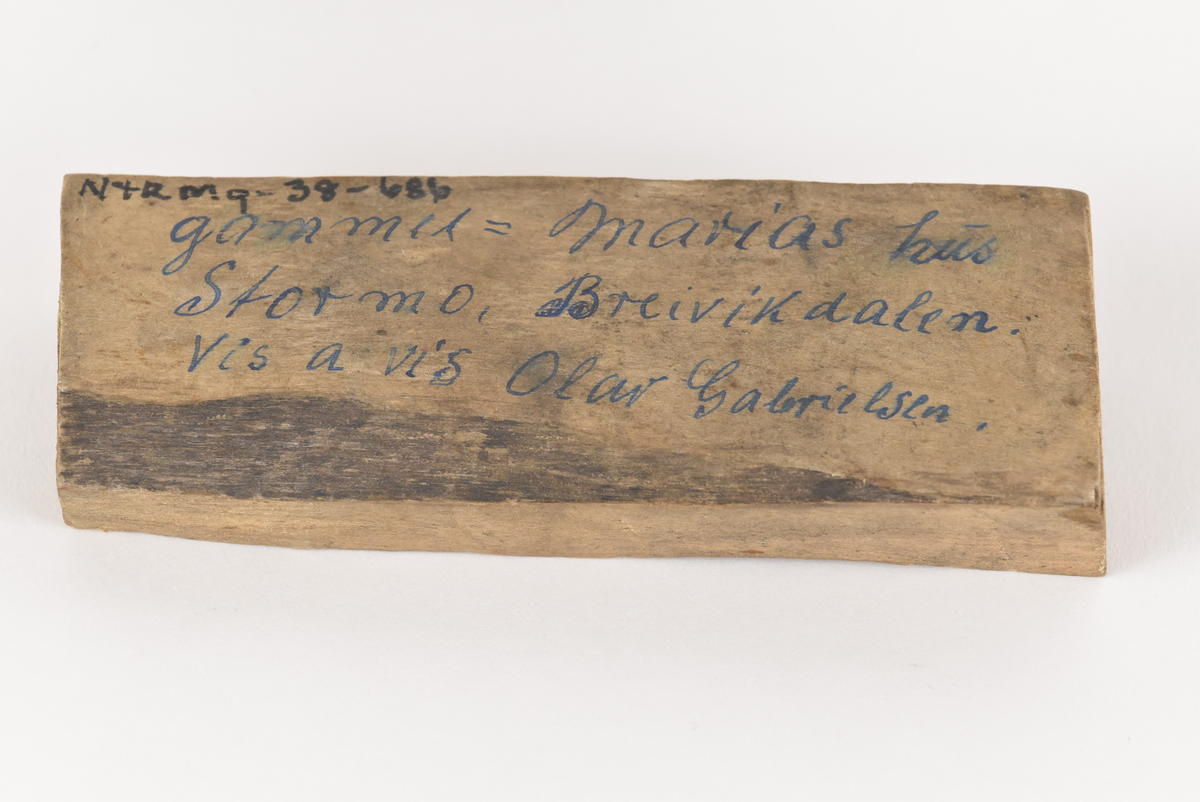 N+R m.q-38-686
gammel= Marias hus
Stormo, Breivikdalen.
Vis a vis Olav Gabrielsen.